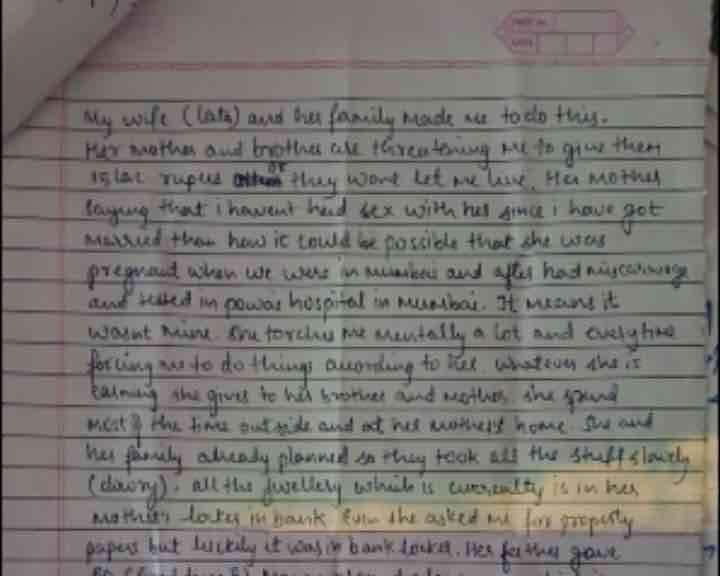 My wife (lata) and her family made me to do this.
Her mother and brother are threatening me to give them
15 lac rupees or they wont let me live. Her mother
saying that i havent had sex with her since i have got
married than how it could be possible that she was
pregnant when we were in mumbai and after had miscarriage
and tested in powai hospital in Mumbai. It means it
wasnt mine. She torches me mentally a lot and everytime
forcing me to do things according to her. whatever she is
earning she gives to her brother and mother. she spend
most of the time outside and at her mother's home. She and
her family already planned so they took all the stuff slowly
(dowry). all the jwellery which is currently is in her
mother's locker in bank. Even she asked me for property
papers but luckily it was in bank locker. Her father gave